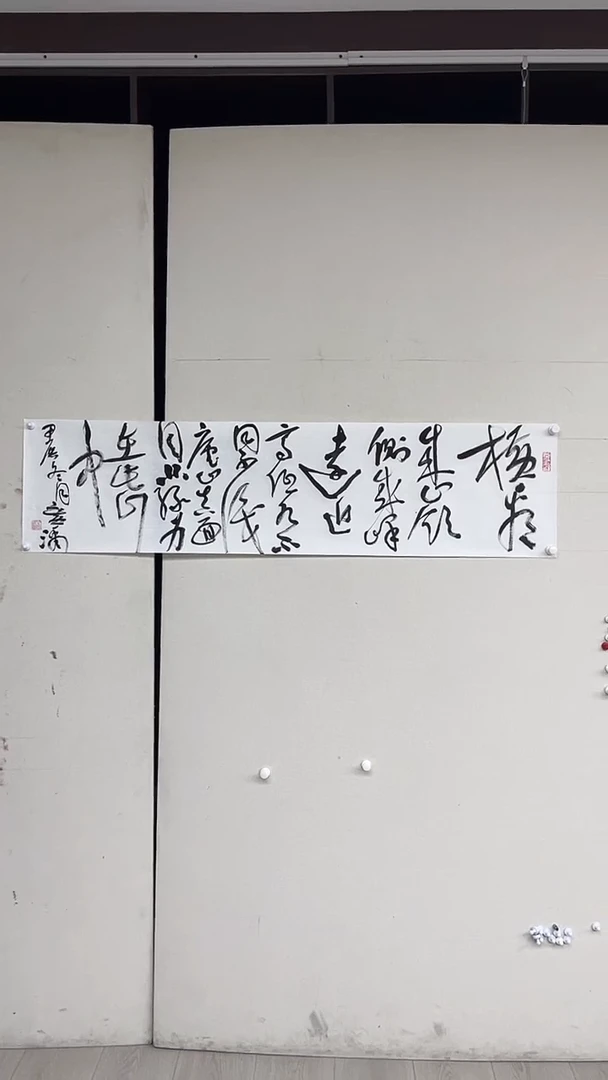 横看
成山岭
侧成峰
远近
高低各不
同不识
庐山真面
目只缘身
在此山
中
甲辰冬月